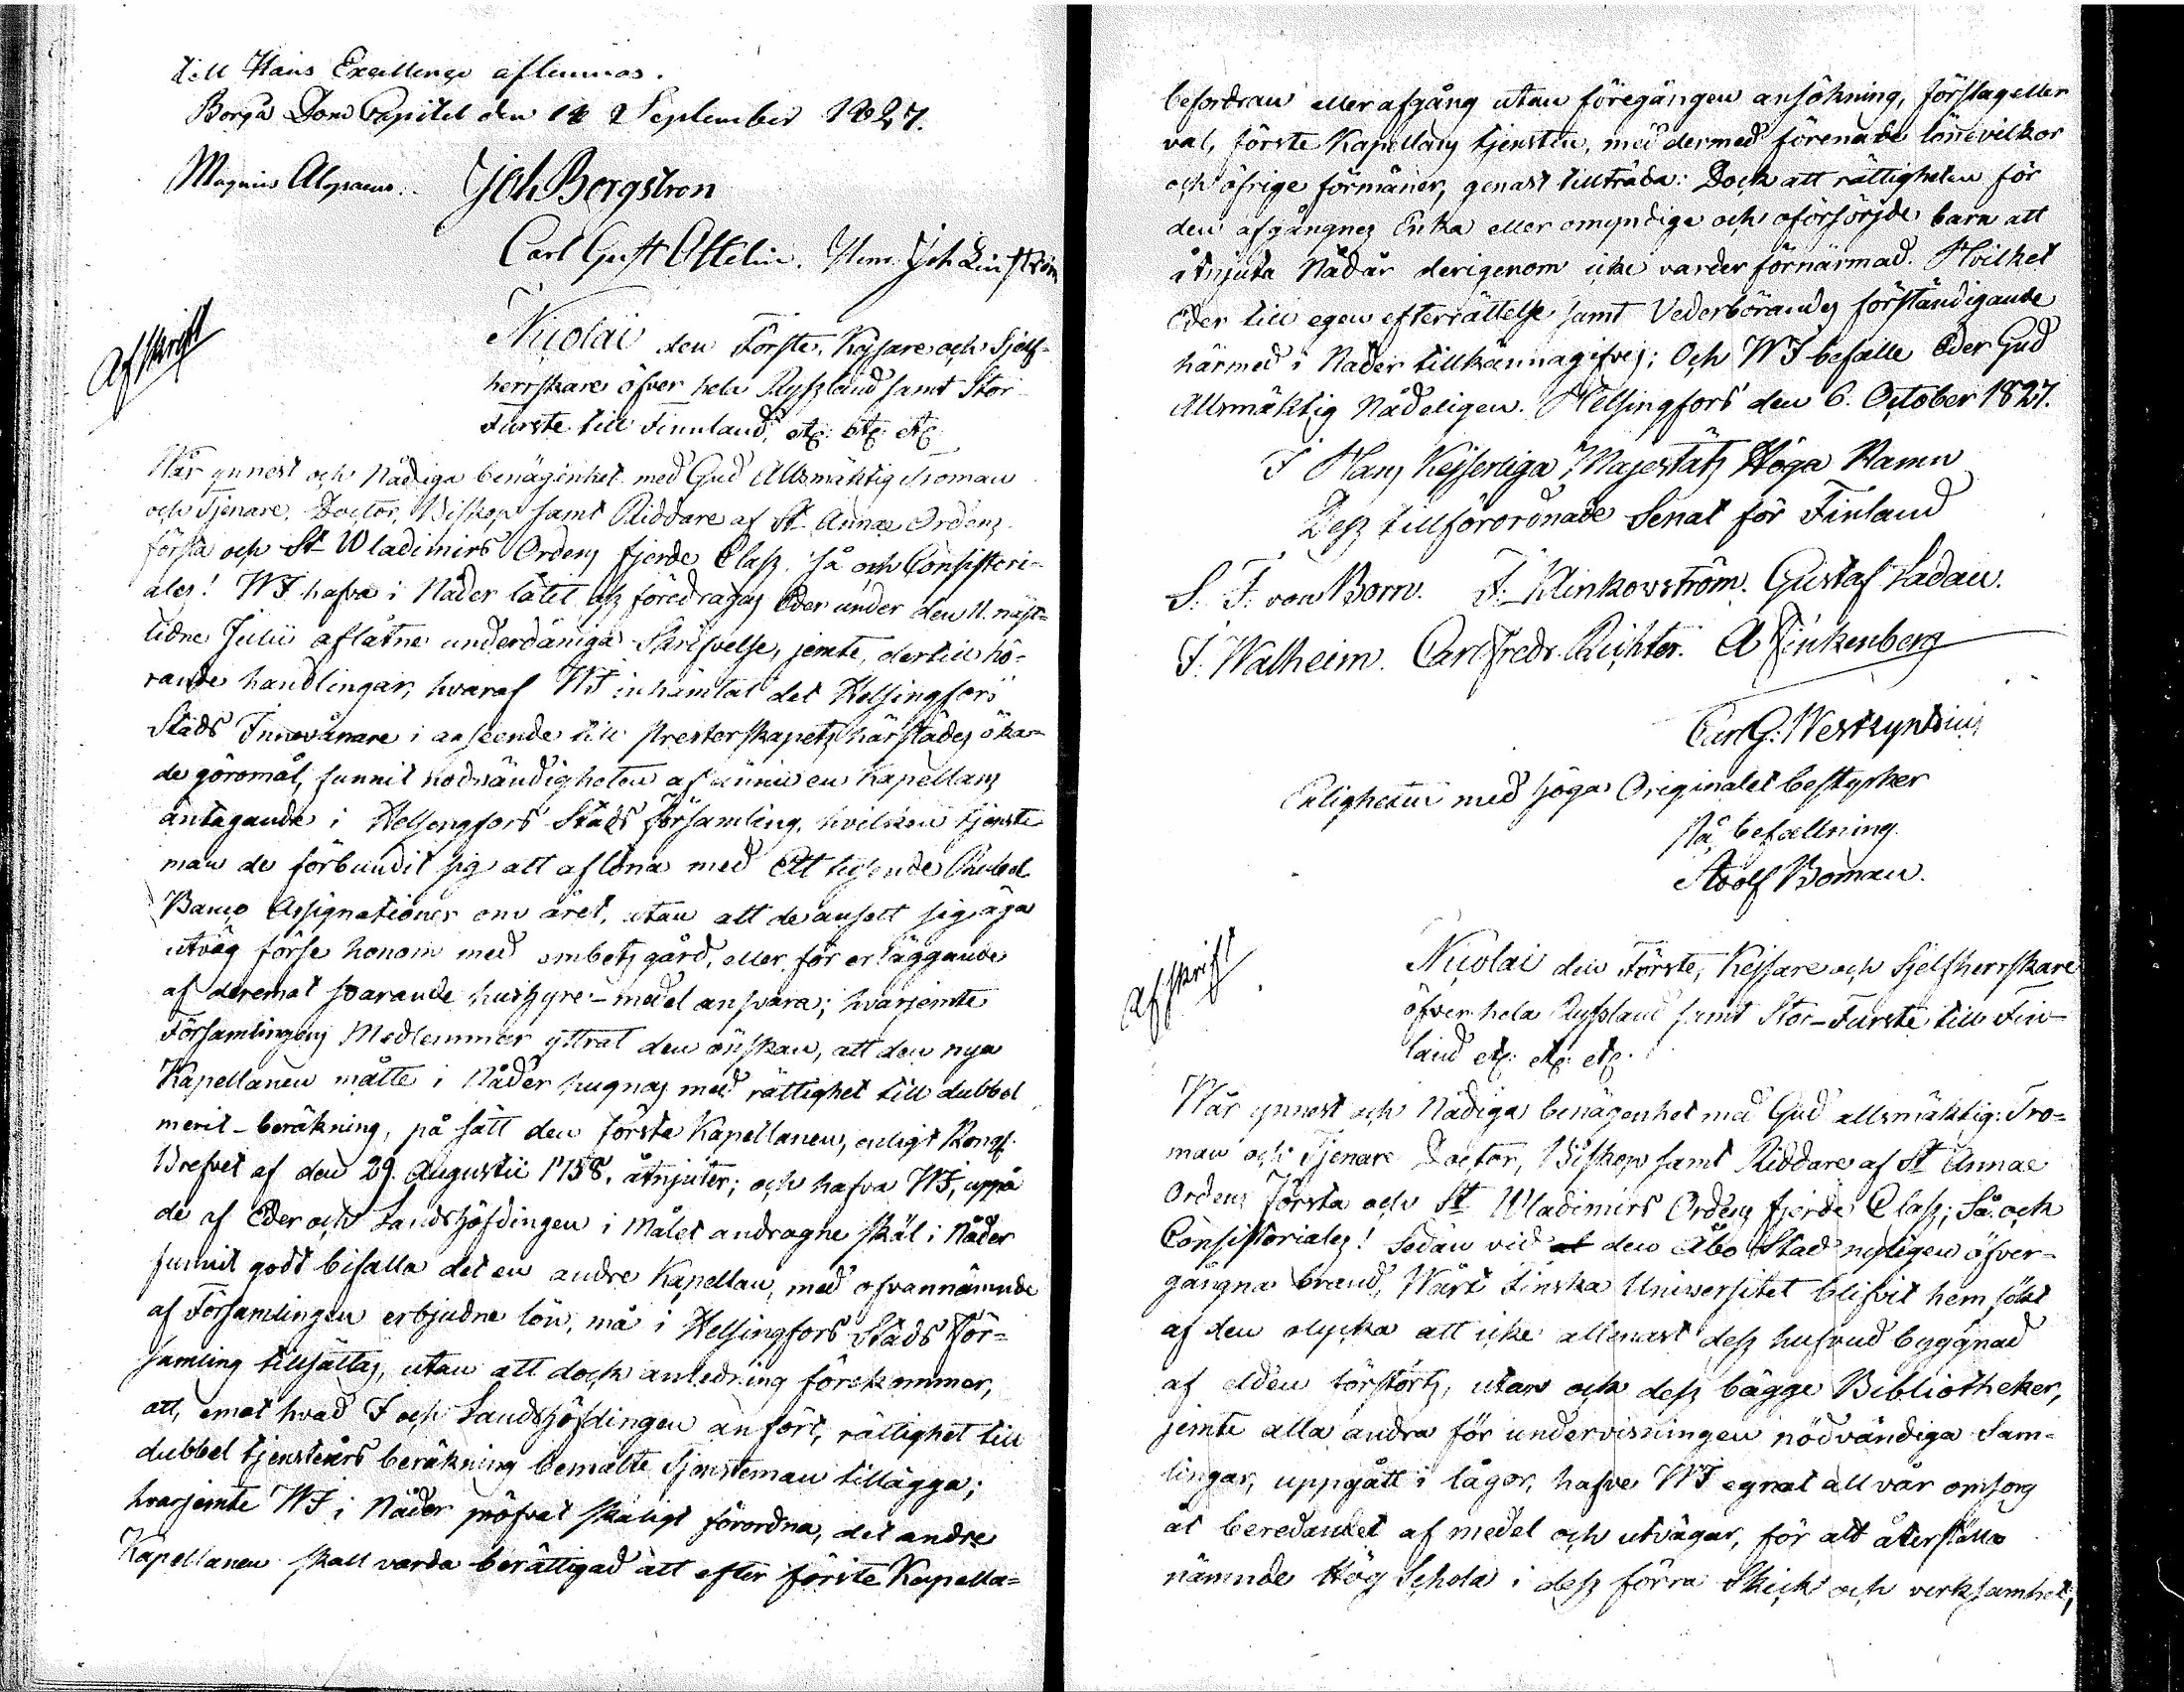 till Hans Excellence aflemnas.
Borgå Dom Capitel den 12 September 1827.
Magnus Alopaeus. Joh Bergstrom
Carl Gust Estelin.
Afskrift
Nicolai den Förste, Kejsare och Sjelf-
herrskare öfver hela Ryssland samt Stor
Furste till Finnland, etc: etc: etc:
Vår ynnest och Nådiga benägenhet med Gud Allsmäktig Troman
och Tjenare, Doctor, Biskop samt Riddare af St Annae Ordens
första och St Wladimirs Ordens fjerde Class, så och Consistori-
ales! WJ hafve i Nåder låtit oss föredragas Eder under den 11. näst-
lidne Julii aflåtne underdåniga Skrifvelse, jemte dertill hö-
rande handlingar, hvaraf WJ inhämtat det Helsingfors
Stads Innevånare i anseende till Presterskapets härstädes öka-
de göromål, funnit nodvändigheten af ännu en Kapellans
antagande i Helsingfors Stads Församling, hvilken tjenste
man de förbundit sig att aflöna med Ett tusende Rubel
Banco Assignationer om året, utan att de ansett sig äga
utväg förse honom med embets gård, eller för erläggande
af deremot svarande hushyre-medel ansvara; hvarjemte
Församlingens Medlemmar yttrat den önskan, att den nya
Kapellanen måtte i Nåder hugnas med rättighet till dubbel
merit-beräkning, på sätt den första Kapellanen, enligt Kongl.
Brefvet af den 29. Augustii 1758, åtnjuter; och hafva WJ, uppå
de af Eder och Landshöfdingen i Målet andragne skäl i Nåder
funnit godt bifalla det en andre Kapellan, med ofvannämnde
af Församlingen erbjudne lön, må i Helsingfors Stads För-
samling tillsättas, utan att dock anledning förekommer,
att, emot hvad J och Landshöfdingen anfört, rättighet till
dubbel tjensteårs beräkning bemälte Tjensteman tillägga;
hvarjemte WJ i Nåder pröfvat skäligt förordna, det andre
Kapellanen skall varda berättigad att efter förste Kapella-
befordran eller afgång utan föregången ansökning, förslag eller
val, förste Kapellans tjensten, med dermed förenade lönevilkor
och öfrige förmåner, genast tillträda: Dock att rättigheten för
den afgångnes Enka eller omyndige och oförsörjde barn att
åtnjuta Nådår derigenom icke varder förnärmad. Hvilket
Eder till egen efterrättelse samt Vederbörandes förständigande
härmed i Nåder tillkännagifves; Och WJ befalle Eder Gud
Allsmäktig Nådeligen. Helsingfors den 6. October 1827.
I Hans Kejserliga Majestäts Höga Namn
Dess tillförordnade Senat för Finland
S. F. von Born. F. Klinkowström. Gustaf Ladau.
J. Walheim. Carl Fredr. Richter. A Finkenberg
Carl G. Westzynthius
Enligheten med höga Originalet bestyrker
På befallning
Adolf Boman.
Afskrift
Nicolai den Förste, Kejsare och Sjelfherrskare
öfver hela Ryssland samt Stor-Furste till Fin-
land etc: etc: etc:
Vår ynnest och Nådiga benägenhet med Gud allsmäktig: Tro-
man och Tjenare Doctor, Biskop samt Riddare af St Annae
Ordens Första och St Wladimirs Ordens fjerde Class; Så och
Consistoriales! Sedan vid den Åbo Stad nyligen öfver-
gångna brand, Wårt Finska Universitet blifvit hemsökt
af den olycka att icke allenast dess hufvud byggnad
af elden förstörts, utan och dess bägge Bibliotheker,
jemte alla andra för undervisningen nödvändiga Sam-
lingar, uppgått i lågor, hafve WJ egnat all vår omsorg
åt beredandet af medel och utvägar, för att återställa
nämnde Hög Schola i dess förra Skick och verksamhet;